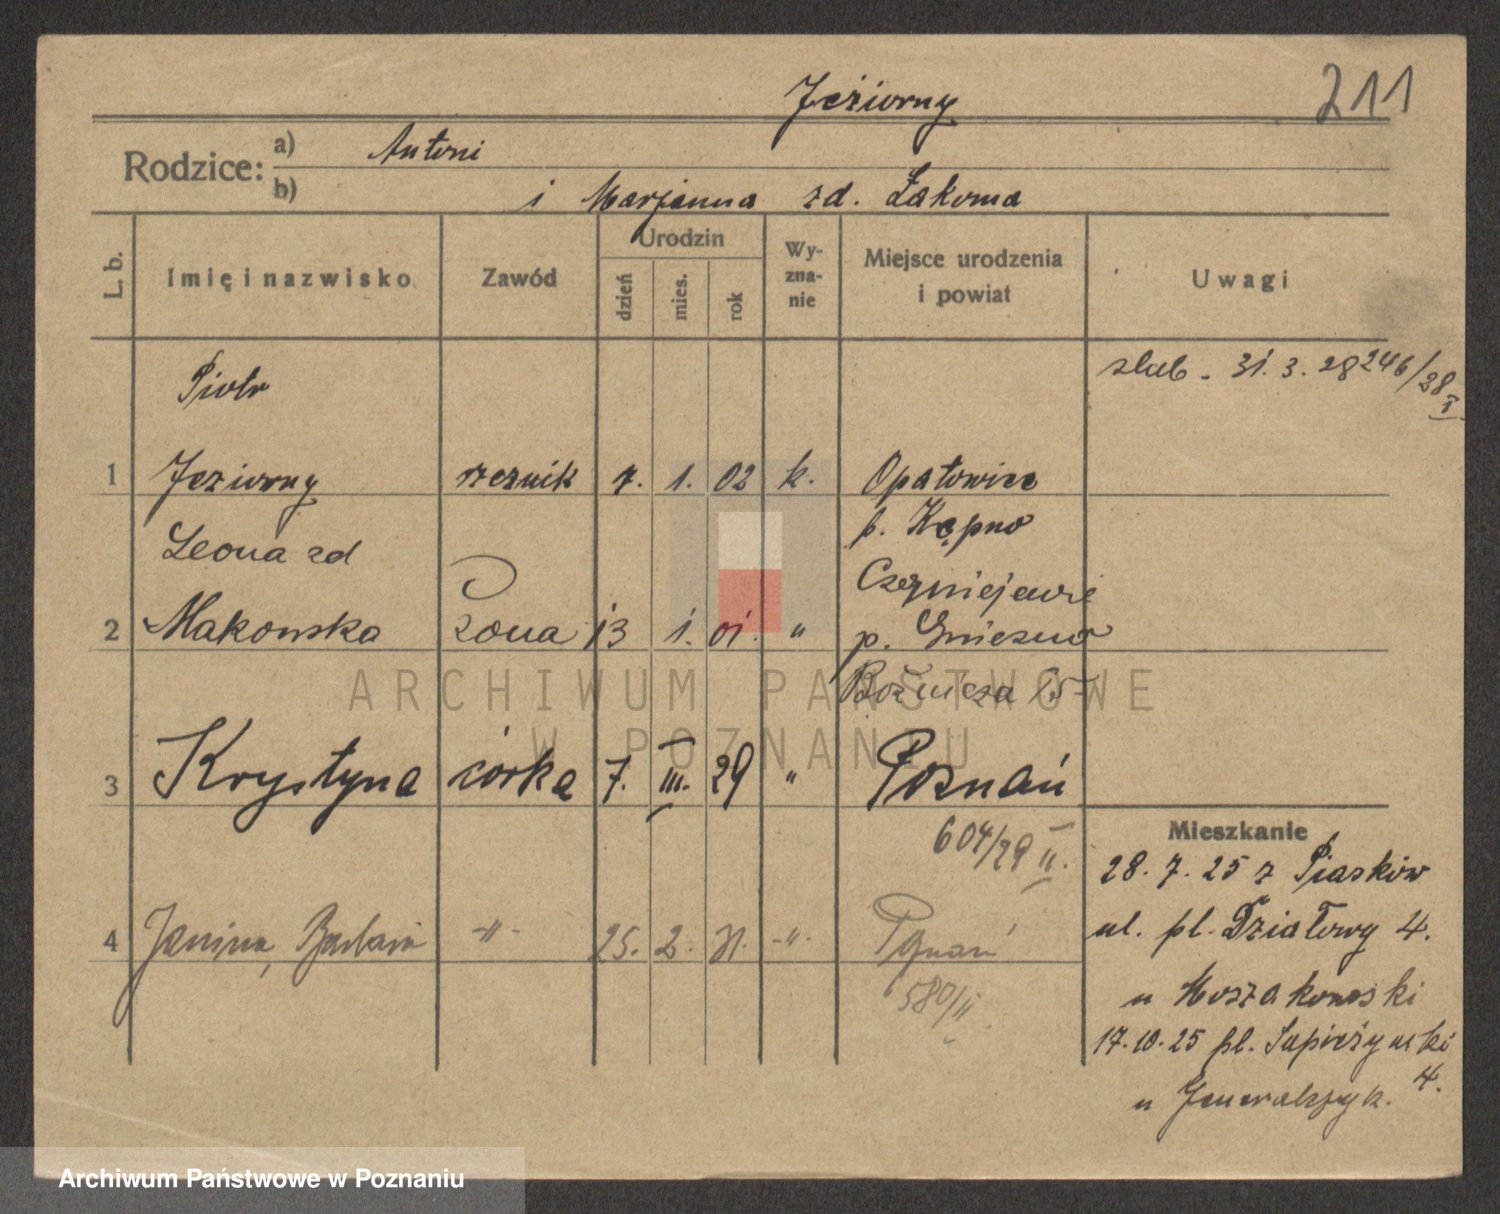 Jeżiorny
211
Rodzice: a) Antoni
b) i Marjanna zd. Łakoma
L. b.
Imię i nazwisko
Zawód
Urodzin
dzień
mies.
rok
Wy-
zna-
nie
Miejsce urodzenia
i powiat
Uwagi
Piotr
ślub - 31. 3. 28 246/28 I
1 Jeziorny rzeznik 7. 1. 02 k. Opatowice
p. Kępno
Leona zd
Czerniejewie
2 Makowska żona 13 1. 01. " p. Gniezno
Bóżnicza 15
3 Krystyna córka 7. III. 29 " Poznań
604/29 II.
4 Janina, Barbara -"- 25. 2. 31. -"- Poznań
580/II
Mieszkanie
28. 7. 25 z Piasków
ul. pl. Działowy 4.
u Moszakowski
17.10.25 pl. Sapieżyński
4.
u
ARCHIWUM PAŃSTWOWE
W POZNANIU
Archiwum Państwowe w Poznaniu